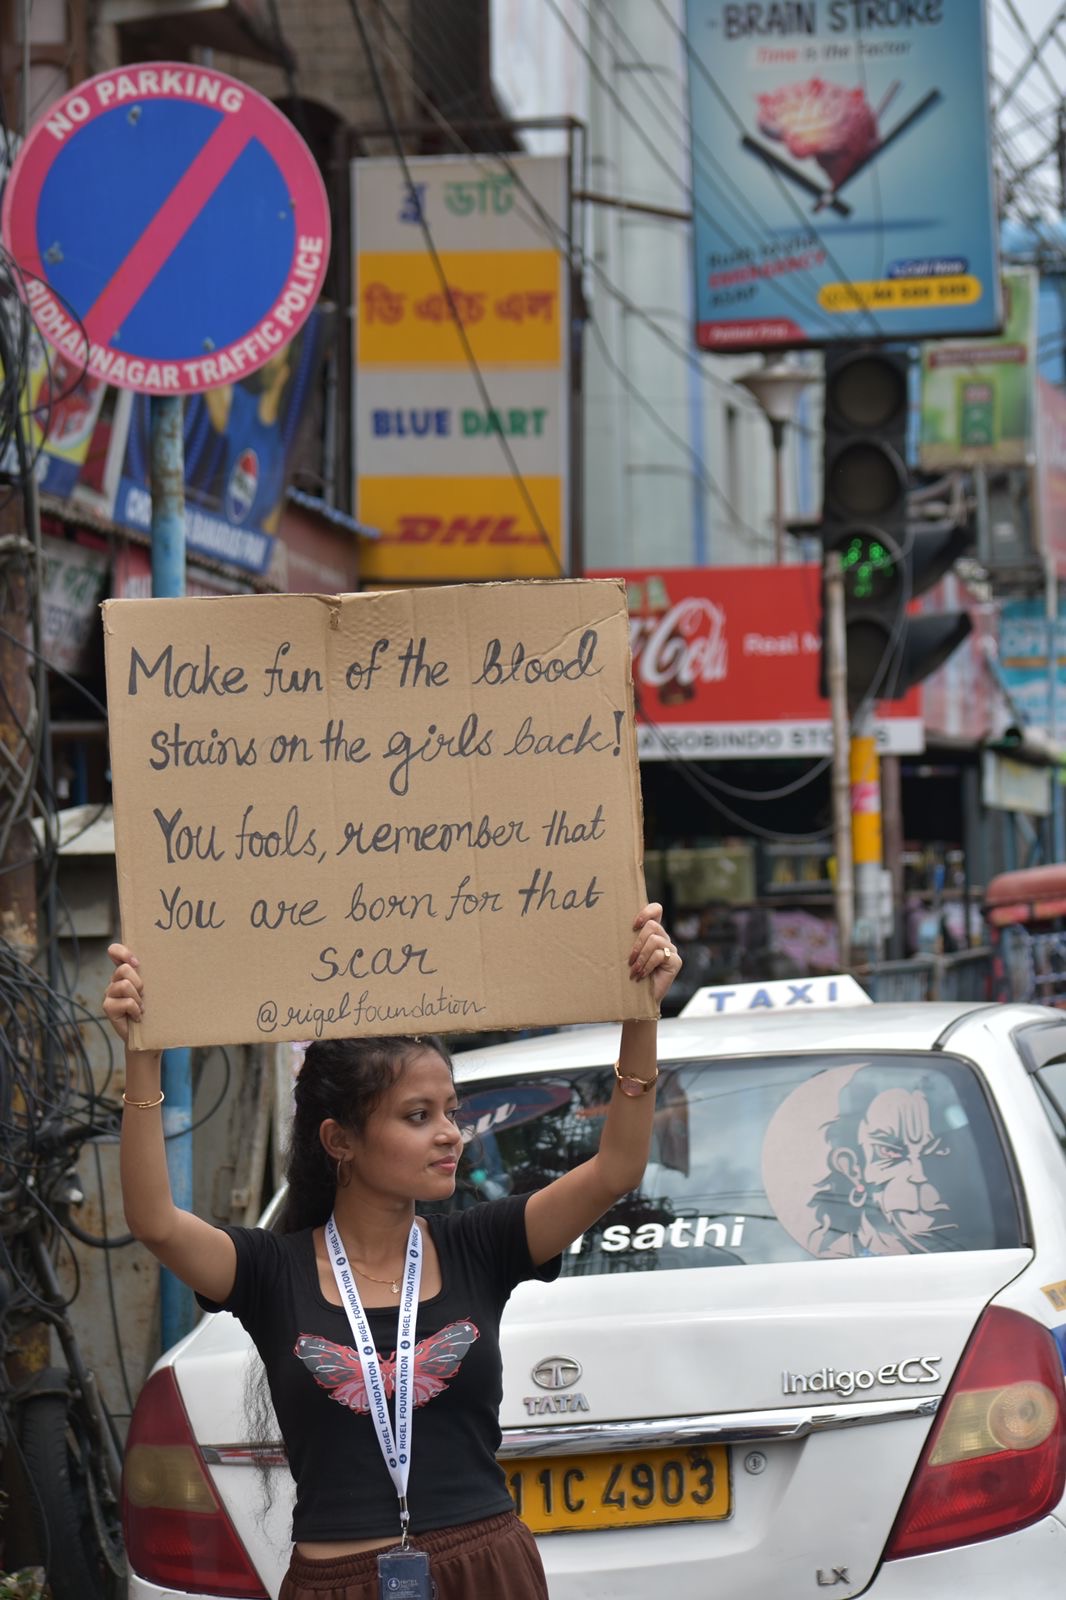 BRAIN STROKE
Time is the Factor
NO PARKING
BIDHANNAGAR TRAFFIC POLICE
ব্লু ডার্ট
ডি এইচ এল
BLUE DART
DHL
EMERGENCY
Call Now
Coca-Cola
Real
GOBINDO
Make fun of the blood
stains on the girls back!
You fools, remember that
You are born for that
scar
@rigelfoundation
TAXI
sathi
RIGEL FOUNDATION
RIGEL FOUNDATION
RIGEL FOUNDATION
RIGEL FOUNDATION
TATA
Indigo eCS
11C 4903
LX